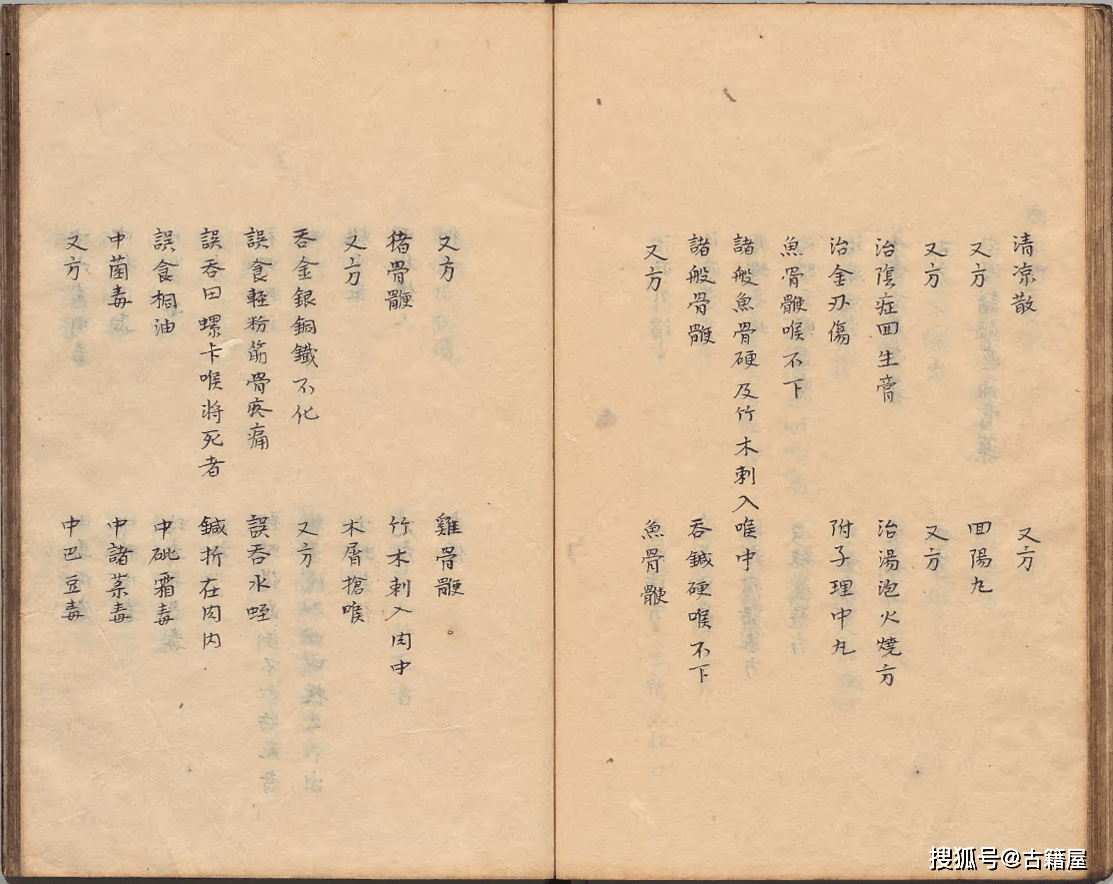 清凉散 又方
又方 回陽丸
又方 又方
治陰症回生膏 治湯泡火燒方
治金刃傷 附子理中丸
魚骨骾喉不下
諸般魚骨硬及竹木刺入喉中
諸般骨骾 吞鍼硬喉不下
又方 魚骨骾
又方 雞骨骾
猪骨骾 竹木刺入肉中
又方 木屑搶喉
吞金銀銅鐵不化 又方
誤食輕粉筋骨疼痛 誤吞水蛭
誤吞田螺卡喉將死者 鍼折在肉内
誤食桐油 中砒霜毒
中菌毒 中諸菜毒
又方 中巴豆毒
搜狐号@古籍屋